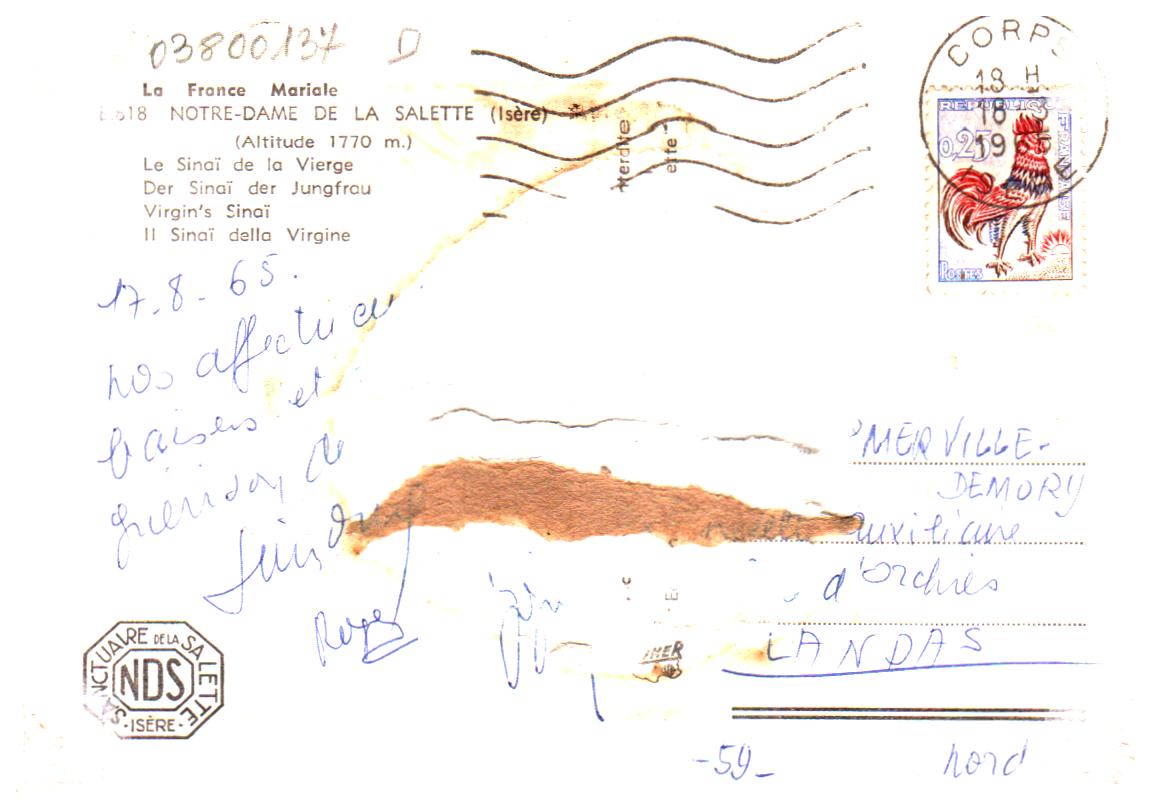 03800137 D
La France Mariale
618 NOTRE-DAME DE LA SALETTE (Isère)
(Altitude 1770 m.)
Le Sinaï de la Vierge
Der Sinaï der Jungfrau
Virgin's Sinaï
Il Sinaï della Virgine
CORPS
18 H
18-8
19
REPUBLIQUE FRANCAISE
0,25
POSTES
17-8-65.
nos affectueux
baisers et
de
Roger
MERVILLE-
DEMORY
auxiliaire
d'Orchies
LANDAS
-59-
Nord
SANCTUAIRE DE LA SALETTE
NDS
-ISÈRE-